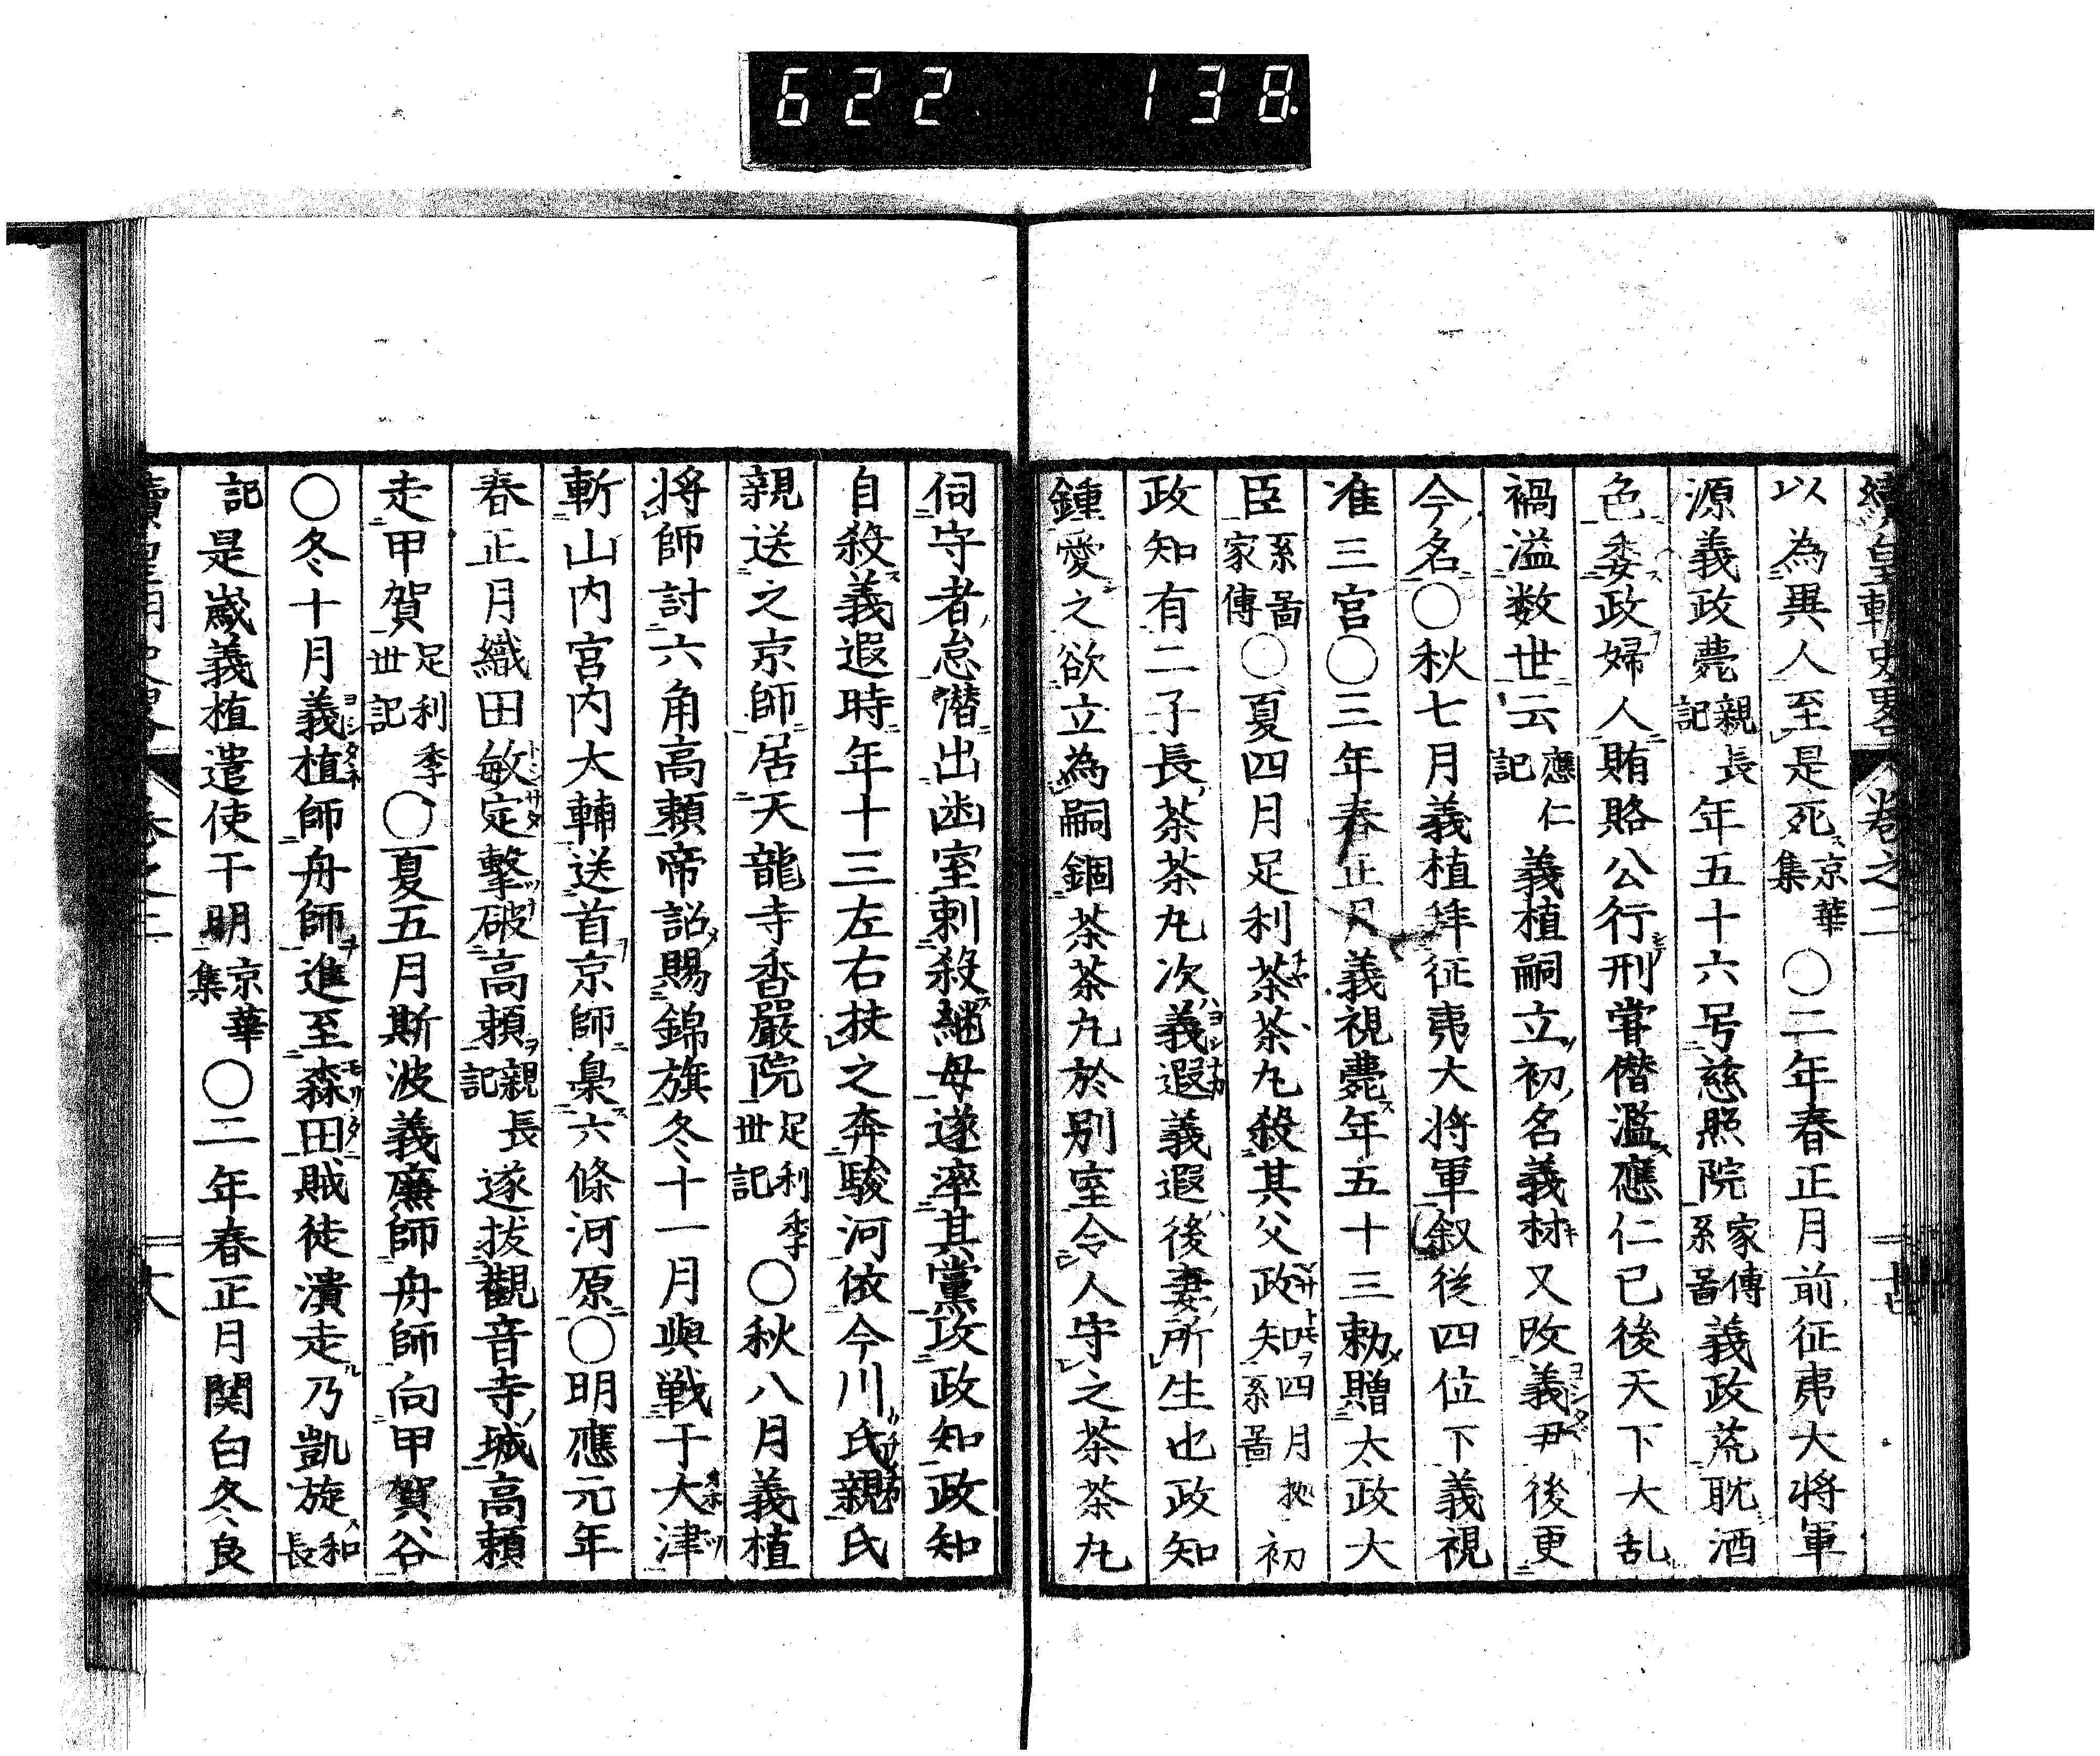 622 138
以為異人至是死京華集○二年春正月前征夷大將軍
源義政薨親長記年五十六号慈照院家傳系啚義政荒耽酒
色委政婦人賄賂公行刑甞僣濫應仁已後天下大乱
禍溢数世云應仁記義植嗣立初名義材又改義尹後更
今名○秋七月義植拜征夷大将軍叙從四位下義視
准三宮○三年春正月義視薨年五十三勅贈太政大
臣系啚家傳○夏四月足利茶茶丸殺其父政知系啚四月拠初
政知有二子長茶茶丸次義遐義遐後妻所生也政知
鍾愛之欲立為嗣錮茶茶丸於别室令人守之茶茶丸
伺守者怠潜出凾室刺殺継母遂率其黨攻政知政知
自殺義遐時年十三左右扶之奔駿河依今川氏親氏
親送之京師居天龍寺香嚴院足利季世記○秋八月義植
将師討六角高頼帝詔賜錦旗冬十一月與戦于大津
斬山内宮内大輔送首京師梟六條河原○明應元年
春正月織田敏定擊破高頼親長記遂拔觀音寺城高頼
走甲賀足利季世記○夏五月斯波義廉師舟師向甲賀谷
○冬十月義植師舟師進至森田賊徒潰走乃凱旋和長
記是歳義植遣使于明京華集○二年春正月関白冬良